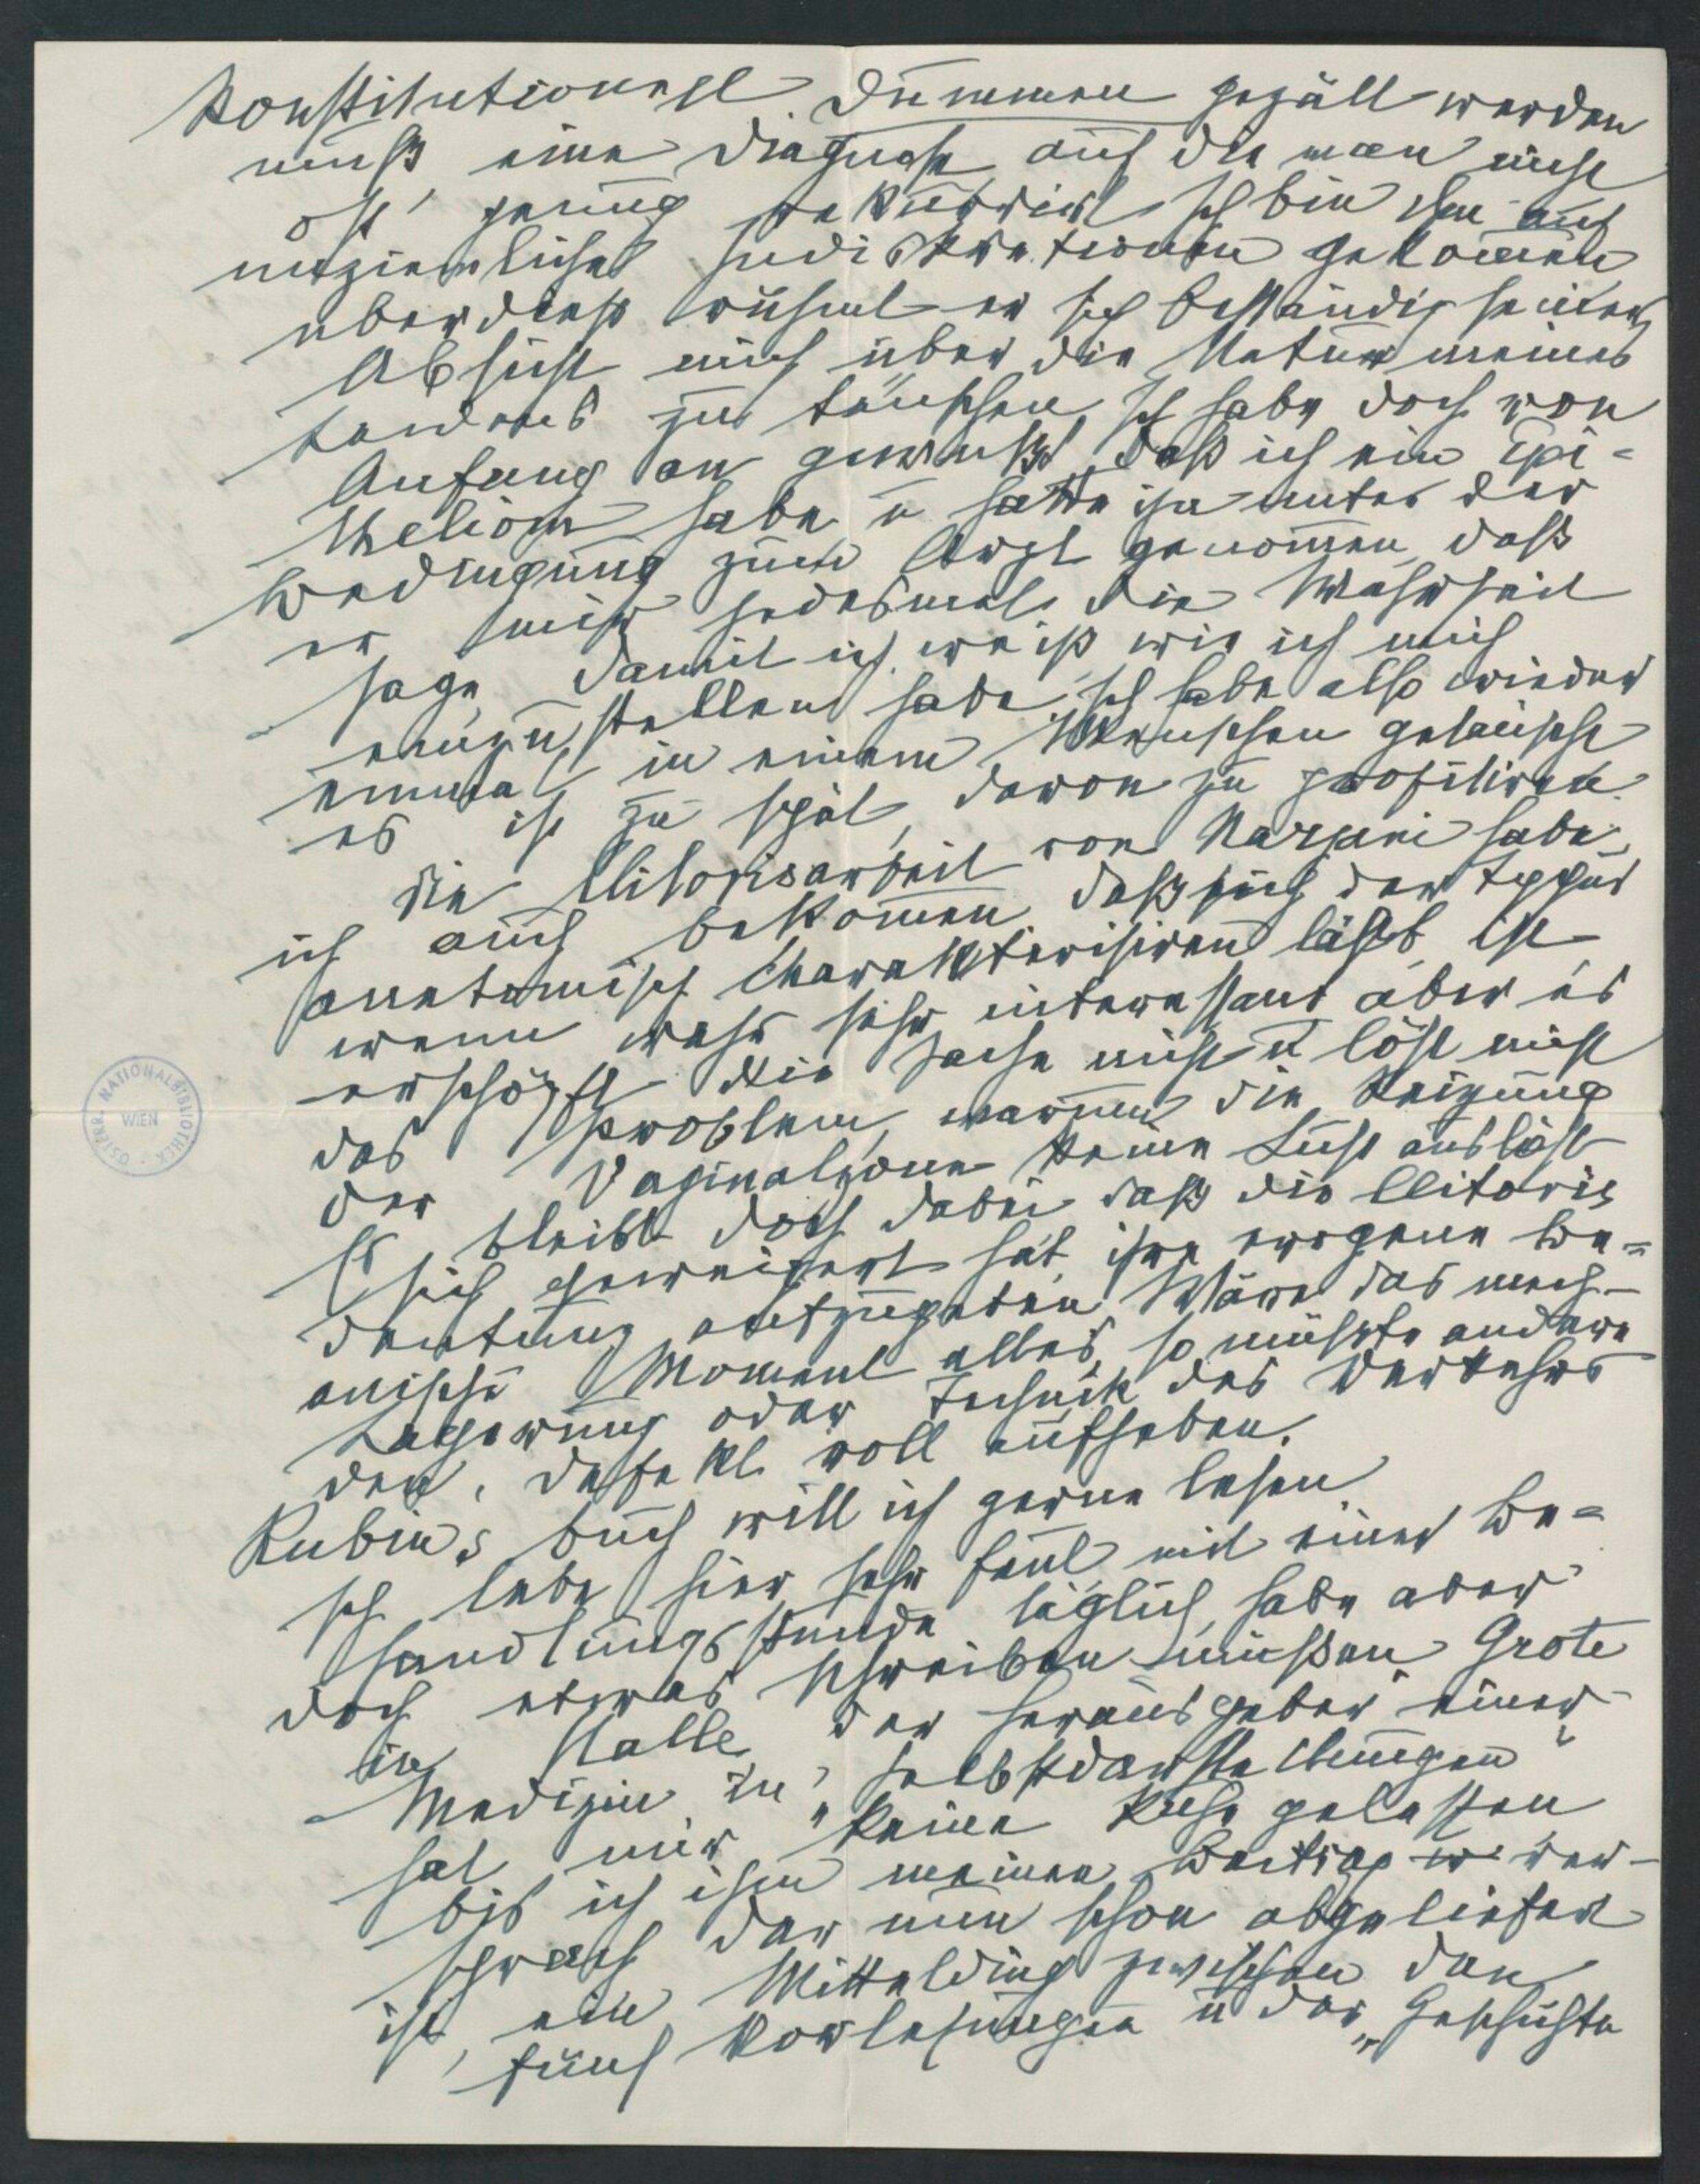 konstitutionell Dummen gezält werden
muß eine Diagnose auf die man nicht
oft genug rekurrirt Ich bin ihm auf
unziemliche Indiskretionen gekom̄en
überdies rühmt er sich beständig seiner
Absicht mich über die Natur meines
Leidens zu täuschen, Ich habe doch von
Anfang an gewußt, daß ich ein Epi=
theliom habe u hatte ihn unter der
Bedingung zum Arzt genom̄en daß
er mir jedesmal die Wahrheit
sage, damit ich weiß wie ich mich
einzustellen habe, Ich habe also wieder
einmal in einem Menschen getäuscht
es ist zu spät, davon zu profitiren.
Die Clitorisarbeit von Narjani habe
ich auch bekom̄en, daß sich der Typus
anatomisch charakterisiren läßt, ist
wenn wahr sehr interessant aber es
erschöpft die Sache nicht u löst nicht
das Problem, warum die Reizung
der Vaginalzone keine Lust auslöst
Es bleibt doch dabei daß die Clitoris
sich geweigert hat ihre erogene Be=
deutung abzugeben Wäre das mech-
anische Moment alles, so müßte andere
Lagerung oder Technik des Verkehrs
den Defekt voll aufheben.
Rubins Buch will ich gerne lesen
Ich lebe hier sehr faul mit einer Be=
handlungsstunde täglich, habe aber
doch etwas schreiben müßen Grote
in Halle der Herausgeber einer
Medizin in „Selbstdarstellungen“
hat mir keine Ruhe gelassen
bis ich ihm meinen Beitrag ver-
sprach der nun schon abgeliefert
ist, ein Mittelding zwischen den
fünf Vorlesungen u der „Geschichte
ÖSTERR. NATIONALBIBLIOTHEK
WIEN